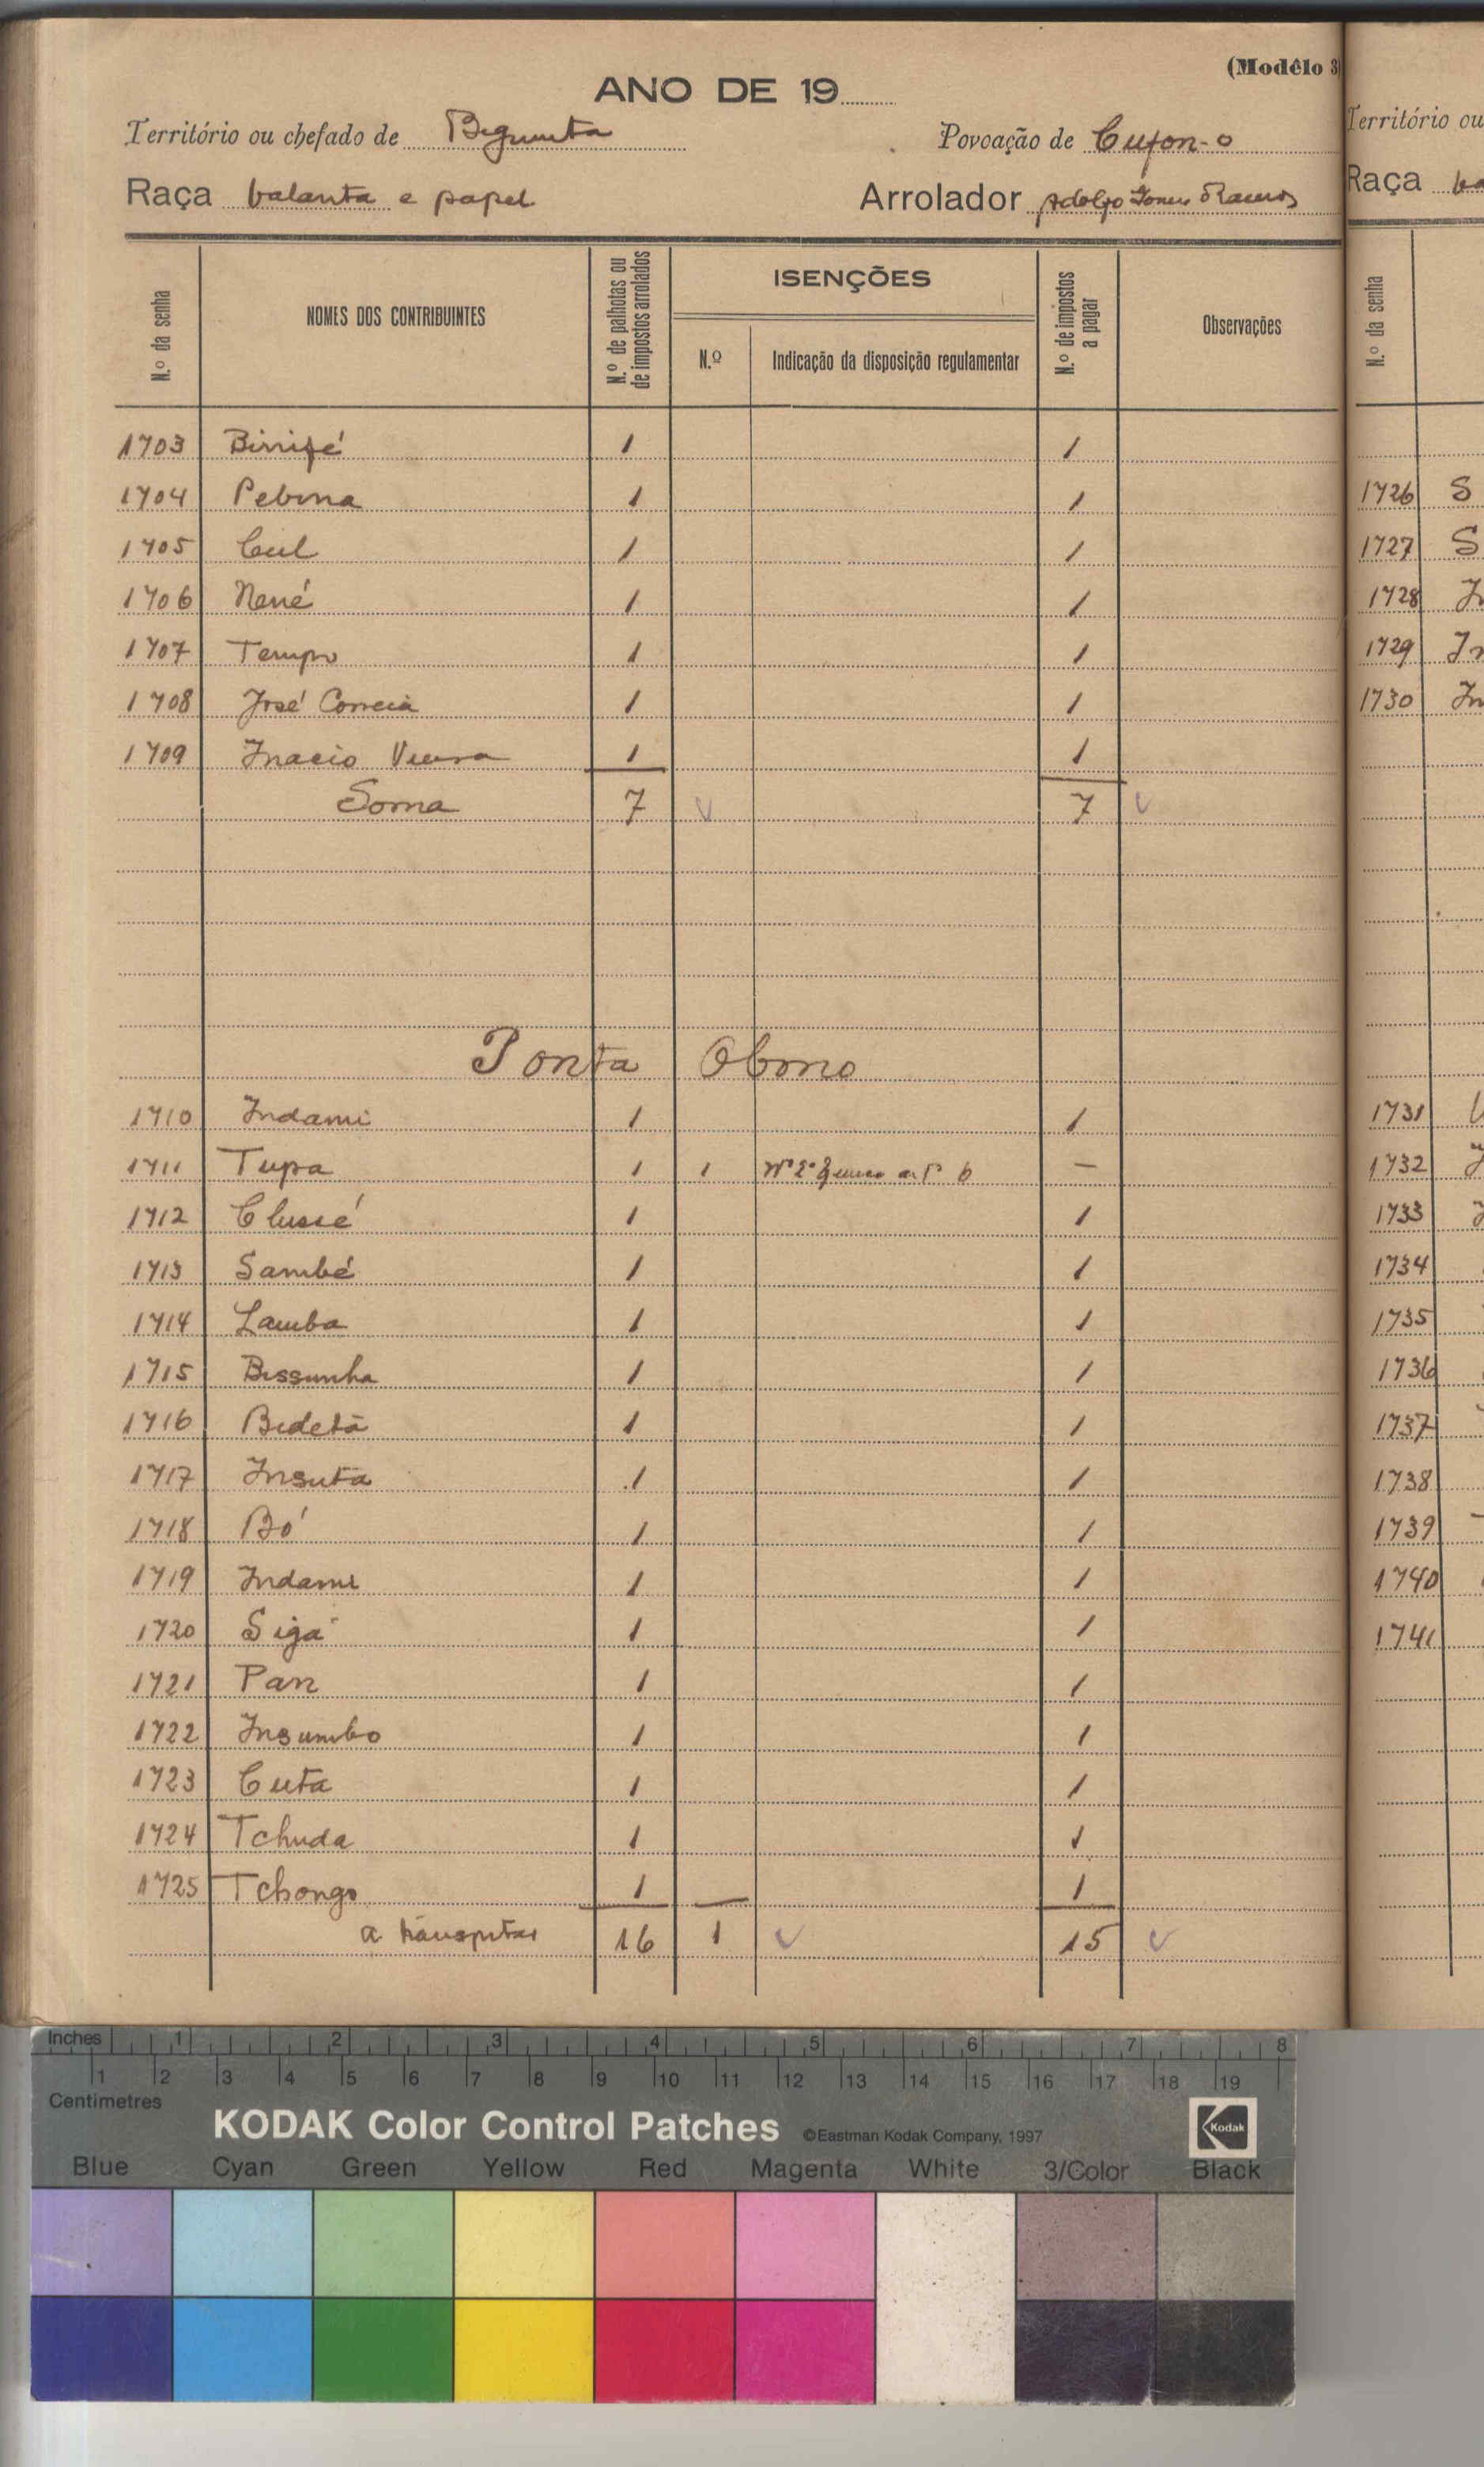 (Modêlo 3)
ANO DE 19
Território ou chefado de Povoação de Cufon-o
Raça balanta e papel Arrolador Adolfo Gomes Ramos
N.º da senha NOMES DOS CONTRIBUINTES N.º de palhotas ou de impostos arrolados ISENÇÕES N.º Indicação da disposição regulamentar N.º de impostos a pagar Observações
1703 1 1
1704 Pebona 1 1
1705 Cul 1 1
1706 Nené 1 1
1707 Tempo 1 1
1708 José Correia 1 1
1709 Inacio Vieira 1 1
Soma 7 7
Ponta Obono
1710 Indami 1 1
1711 Tupa 1 1 Nº 2º artº 6 —
1712 Clussé 1 1
1713 Sambé 1 1
1714 Lamba 1 1
1715 Bissunha 1 1
1716 Bidetã 1 1
1717 Insuta 1 1
1718 Bó 1 1
1719 Indami 1 1
1720 Siga 1 1
1721 Pan 1 1
1722 Insumbo 1 1
1723 Cuta 1 1
1724 Tchuda 1 1
1725 Tchongo 1 1
a transportar 16 1 15
Território ou
Raça ba
N.º da senha
1726 S
1727 S
1728 In
1729 In
1730 In
1731
1732
1733
1734
1735
1736
1737
1738
1739
1740
1741
Inches 1 2 3 4 5 6 7 8
1 2 3 4 5 6 7 8 9 10 11 12 13 14 15 16 17 18 19
Centimetres
KODAK Color Control Patches ©Eastman Kodak Company, 1997 Kodak
Blue Cyan Green Yellow Red Magenta White 3/Color Black